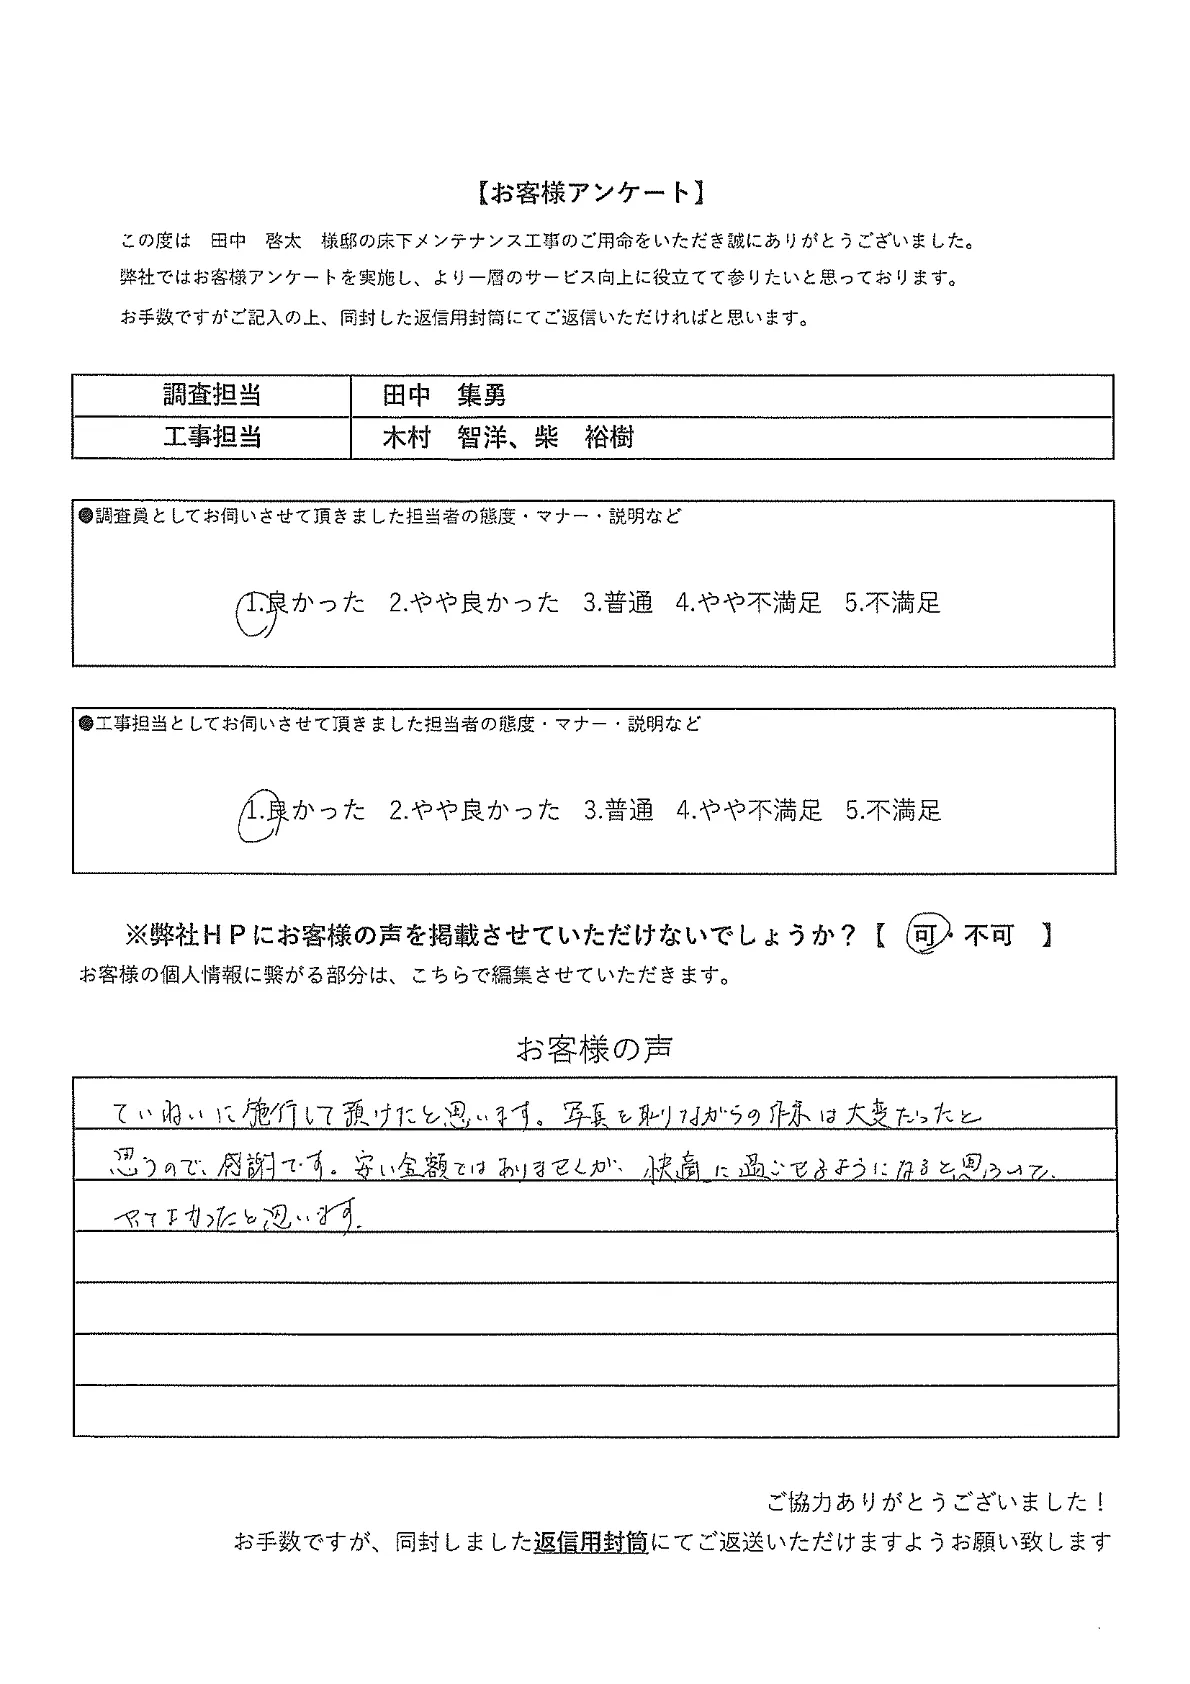 【お客様アンケート】
この度は　田中　啓太　様邸の床下メンテナンス工事のご用命をいただき誠にありがとうございました。
弊社ではお客様アンケートを実施し、より一層のサービス向上に役立てて参りたいと思っております。
お手数ですがご記入の上、同封した返信用封筒にてご返信いただければと思います。
調査担当　田中　集勇
工事担当　木村　智洋、柴　裕樹
●調査員としてお伺いさせて頂きました担当者の態度・マナー・説明など
1.良かった　2.やや良かった　3.普通　4.やや不満足　5.不満足
●工事担当としてお伺いさせて頂きました担当者の態度・マナー・説明など
1.良かった　2.やや良かった　3.普通　4.やや不満足　5.不満足
※弊社ＨＰにお客様の声を掲載させていただけないでしょうか？【　可・不可　】
お客様の個人情報に繋がる部分は、こちらで編集させていただきます。
お客様の声
ていねいに施行して頂けたと思います。写真を取りながらの作業は大変だったと
思うので、感謝です。安い金額ではありませんが、快適に過ごせるようになると思うので、
やってよかったと思います。
ご協力ありがとうございました！
お手数ですが、同封しました返信用封筒にてご返送いただけますようお願い致します